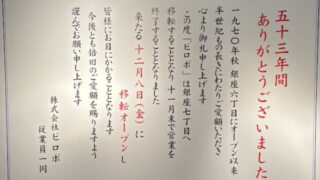 五十三年間
ありがとうございました
一九七〇年秋 銀座六丁目にオープン以来
半世紀もの長きにわたりご愛顧いただき
心より御礼申し上げます
この度「ピロポ」は銀座七丁目へ
移転することとなり 十一月末で営業を
終了することとなりました
来たる十二月八日(金)に
移転オープンし
皆様にお目にかかることとなります
今後とも倍旧のご愛顧を賜りますよう
謹んでお願い申し上げます
株式会社ピロポ
従業員一同